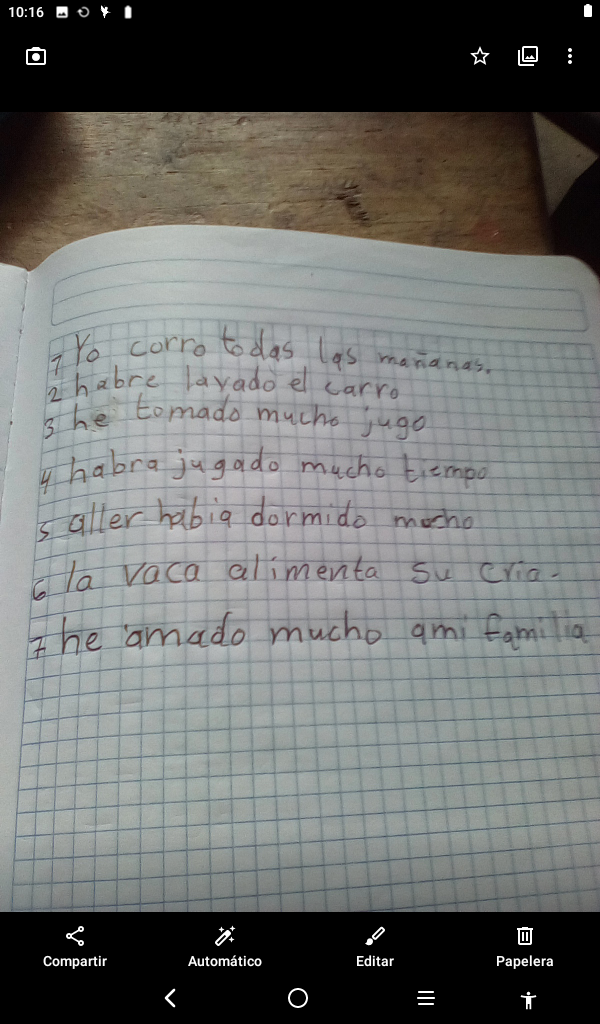 10:16
1 Yo corro todas las mañanas.
2 habre lavado el carro
3 he tomado mucho jugo
4 habra jugado mucho tiempo
5 aller habia dormido mucho
6 la vaca alimenta su cria.
7 he amado mucho ami familia
Compartir Automático Editar Papelera